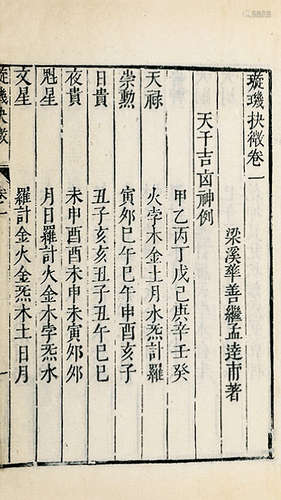 璇璣抉微卷一
梁溪華善繼孟達甫著
天干吉凶神例
甲乙丙丁戊己庚辛壬癸
天祿　火孛木金土月水炁計羅
崇勳　寅卯巳午巳午申酉亥子
日貴　丑子亥亥丑子丑午巳巳
夜貴　未申酉酉未申未寅卯卯
魁星　月日羅計火金木孛炁水
文星　羅計金火金炁木土日月
璇璣抉微　卷一